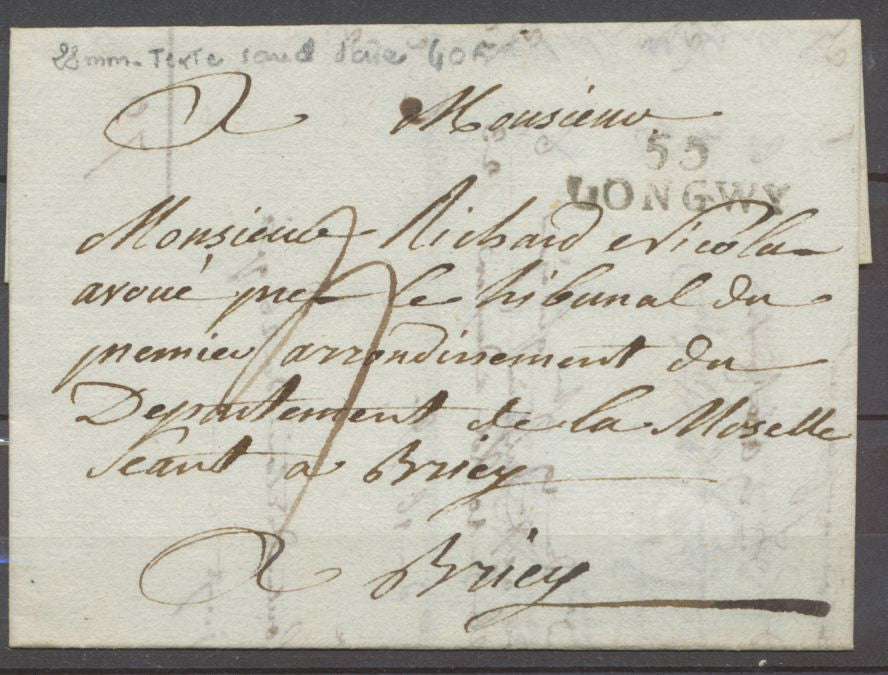 28mm - Texte sans date 40F
A Monsieur
55
LONGWY
Monsieur Richard Nicolas
avoué pres le tribunal du
premier arrondissement du
Departement de la Moselle
Seant a Briey
A Briey